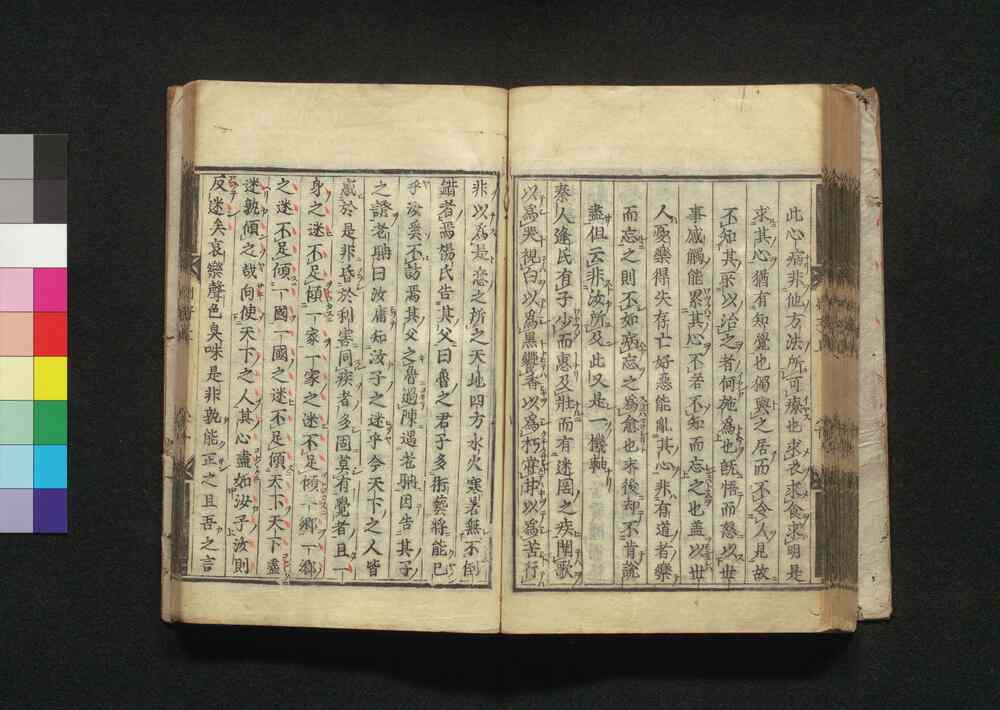 此心病非他方法所可療也求衣求食求明是
求其心猶有知覺也獨與之居而不令人見故
不知其所以治之者何施爲也既悟而怒以世
事感觸能累其心也不若不知而忘之也蓋以世
人憂樂得失存亡好惡能亂其心非有道者樂
而忘之則不如病忘之爲愈也末後却不肯說
盡但云非汝所及此又是一機軸
秦人逢氏有子少而惠及壯而有迷罔之疾聞歌
以爲哭視白以爲黑饗香以爲朽嘗甘以爲苦行
非以爲是意之所之天地四方水火寒暑無不倒
錯者焉楊氏告其父曰魯之君子多術藝將能已
乎汝奚不訪焉其父之魯過陳遇老聃因告其子
之證老聃曰汝庸知汝子之迷乎今天下之人皆
惑於是非昏於利害同疾者多固莫有覺者且一
身之迷不足傾一家一家之迷不足傾一鄉一鄉
之迷不足傾一國一國之迷不足傾天下天下盡
迷孰傾之哉向使天下之人其心盡如汝子汝則
反迷矣哀樂聲色臭味是非孰能正之且吾之言